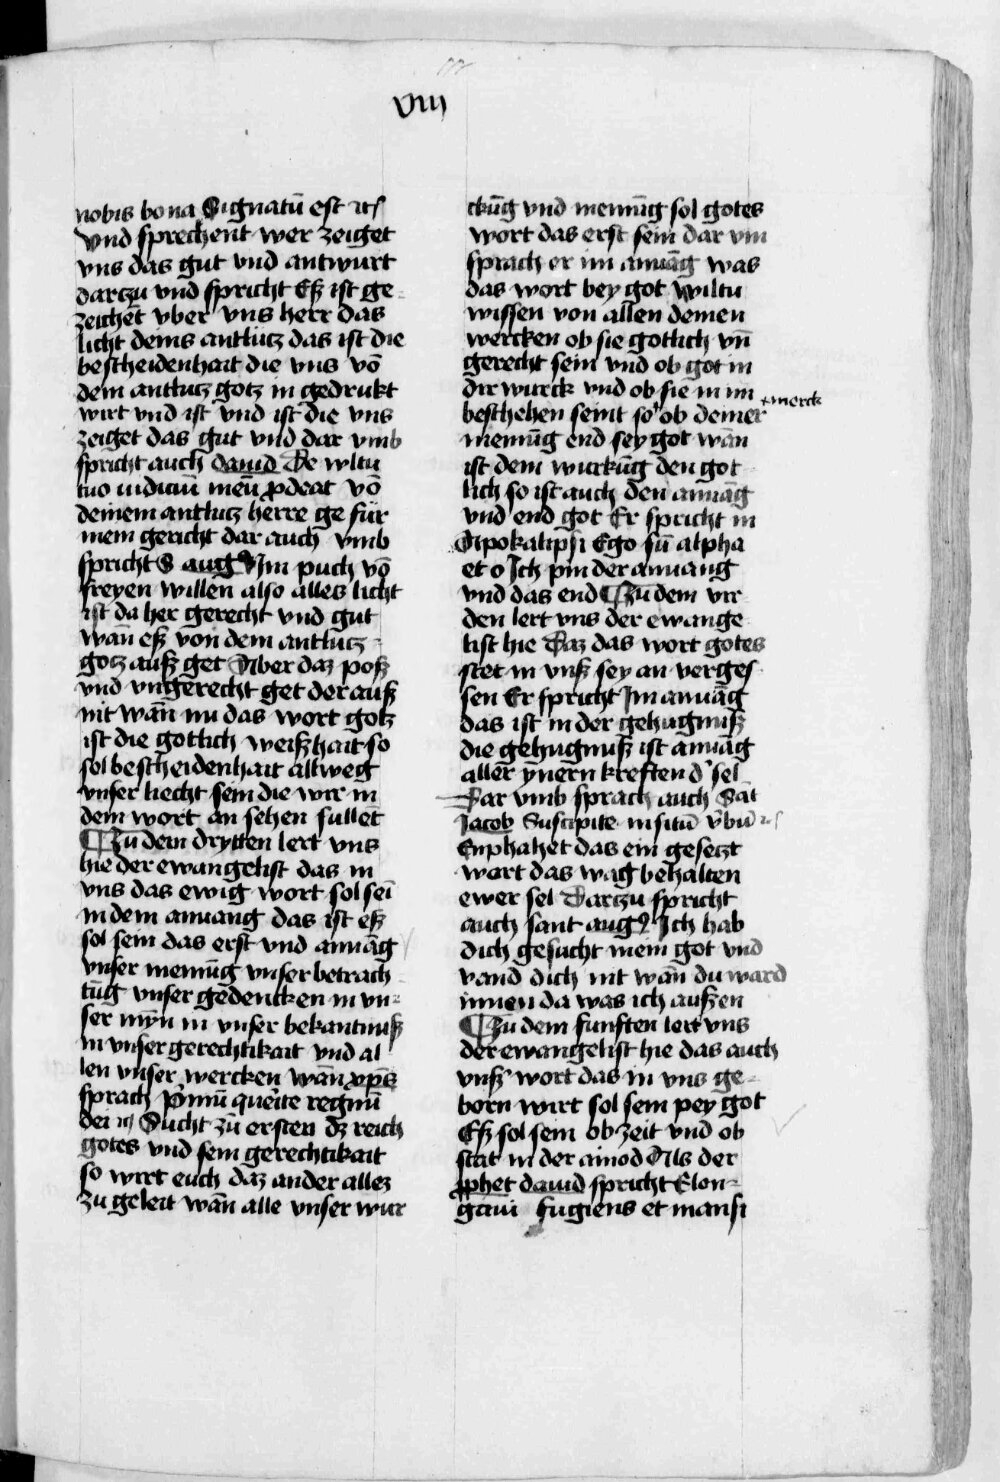 viiij
nobis bona Signatū est etc
vnd sprechent wer zeiget
vns das gut vnd antwurt
darczu vnd spricht Eß ist ge-
zeichet vber vns herr das
licht deins antlucz das ist die
bescheidenhait die vns vō
dem antlucz gotz in gedrukt
wirt vnd ist vnd ist die vns
zeiget das gut vnd dar vmb
spricht auch dauid De vltu
tuo iudiciū meū ꝓdeat vō
deinem antlucz herre ge für
mein gericht dar auch vmb
spricht S augꝰ Im puch vō
freyen willen also alles licht
ist da her gerecht vnd gut
wān eß von dem antlucz
gotz auß get Aber daz poß
vnd vngerecht get der auß
nit wān nu das wort gotz
ist die gotlich weißhait so
sol bescheidenhait allweg
vnser liecht sein die wir in
dem wort an sehen sullēt
¶ Zu dem drytten lert vns
hie der ewangelist das in
vns das ewig wort sol sei
in dem anuang das ist eß
sol sein das erst vnd anuāg
vnser meinūg vnser betrach
tūg vnser gedencken in vn-
ser myn in vnser bekantnuß
in vnser gerechtikait vnd al
len vnser wercken wān xp̄s
sprach p̄mū querite regnū
dei etc Sucht zū ersten dz reich
gotes vnd sein gerechtikait
so wirt euch daz ander allez
zu geleit wān alle vnser wur
ckūg vnd meinūg sol gotes
wort das erst sein dar vm
sprach er im anuāg was
das wort bey got wiltu
wissen von allen deinen
wercken ob sie gotlich vn̄
gerecht sein vnd ob got in
dir wurck vnd ob sie in im
+ merck
beschehen seint so ob deiner
meinūg end sey got wān
ist dein wurkūg den got
lich so ist auch den anuāg
vnd end got Er spricht in
Apokalipsi Ego sū alpha
et o Ich pin der anuang
vnd das end ¶ Zu dem vir
den lert vns der ewange
list hie Daz das wort gotes
stet in vnß sey an verges
sen Er spricht Im anuāg
das ist in der gehugnuß
die gehugnuß ist anuāg
aller ynern kreften d' sel
Dar vmb sprach auch Sāt
Jacob Suscipite insitū v̄bū etc
Enphahet das ein gesetzt
wort das mag behalten
ewer sel Darczu spricht
auch sant augꝰ Ich hab
dich gesucht mein got vnd
vand dich nit wān du ward
innen da was ich außen
¶ Zu dem funften lert vns
der ewangelist hie das auch
vnß' wort das in vns ge-
born wirt sol sein pey got
Eß sol sein ob zeit vnd ob
stat in der ainod Als der
ꝓphet dauid spricht Elon-
gaui fugiens et mansi